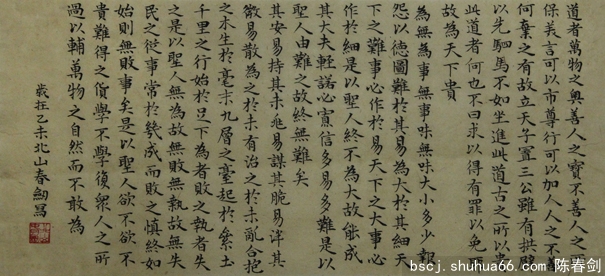 道者萬物之奧善人之寶不善人之
保美言可以市尊行可以加人人之不善
何棄之有故立天子置三公雖有拱璧
以先駟馬不如坐進此道古之所以貴
此道者何也不曰求以得有罪以免
故為天下貴
為無為事無事味無味大小多少報
怨以德圖難於其易為大於其細天
下之難事必作於易天下之大事必
作於細是以聖人終不為大故能成
其大夫輕諾必寡信多易多難是以
聖人由難之故終無難矣
其安易持其未兆易謀其脆易泮其
微易散為之於未有治之於未亂合抱
之木生於毫末九層之臺起於絫土
千里之行始於足下為者敗之執者失
之是以聖人無為故無敗無執故無失
民之從事常於幾成而敗之慎終如
始則無敗事矣是以聖人欲不欲不
貴難得之貨學不學復衆人之所
過以輔萬物之自然而不敢為
歲在乙未北山春劍寫
bscj.shuhua66.com 陈春剑